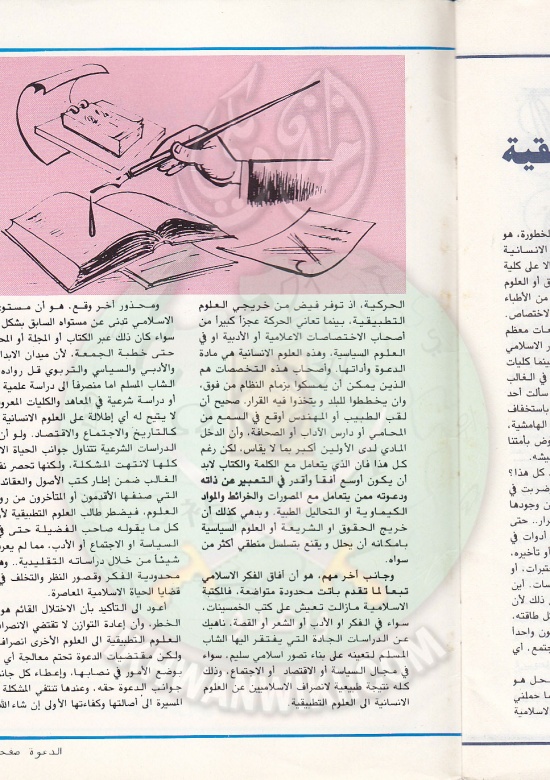 قية
لخطورة، هو
الانسانية
الا على كلية
ق أو العلوم
من الأطباء
الاختصاص.
عات معظم
ر الاسلامي
بينما كليات
في الغالب
سألت أحد
باستخفاف
الهامشية،
وض بأمتنا
عيشه.
كل هذا؟
ضاربت في
من وجودها
رار.. حتى
أدوات في
أو تأخيره،
ختبرات، أو
سات. أين
ذلك لأن
طاقته،
ون واحداً
جتمع، أي
حل هو
ما حملني
الاسلامية
الحركية، اذ توفر فيض من خريجي العلوم
التطبيقية، بينما تعاني الحركة عجزاً كبيراً من
أصحاب الاختصاصات الاعلامية أو الأدبية او في
العلوم السياسية، وهذه العلوم الانسانية هي مادة
الدعوة وأداتها. وأصحاب هذه التخصصات هم
الذين يمكن أن يمسكوا بزمام النظام من فوق،
وان يخططوا للبلد و يتخذوا فيه القرار. صحيح أن
لقب الطبيب أو المهندس أوقع في السمع من
المحامي أو دارس الأداب أو الصحافة، وأن الدخل
المادي لدى الأولين أكبر بما لا يقاس، لكن رغم
كل هذا فان الذي يتعامل مع الكلمة والكتاب لابد
أن يكون أوسع أفقاً وأقدر في التعبير عن ذاته
ودعوته ممن يتعامل مع المصورات والخرائط والمواد
الكيماوية او التحاليل الطبية. و بدهي كذلك أن
خريج الحقوق أو الشريعة أو العلوم السياسية
بامكانه أن يحلل و يقنع بتسلسل منطقي أكثر من
سواه.
وجانب آخر مهم، هو أن أفاق الفكر الاسلامي
تبعاً لما تقدم باتت محدودة متواضعة، فالمكتبة
الاسلامية مازالت تعيش على كتب الخمسينات،
سواء في الفكر و الأدب أو الشعر أو القصة، ناهيك
عن الدراسات الجادة التي يفتقر اليها الشاب
المسلم لتعينه على بناء تصور اسلامي سليم، سواء
في مجال السياسة أو الاقتصاد أو الاجتماع، وذلك
كله نتيجة طبيعية لانصراف الاسلاميين عن العلوم
الانسانية الى العلوم التطبيقية.
ومحذور آخر وقع، هو أن مستوى
الاسلامي تدنى عن مستواه السابق بشكل
سواء كان ذلك عبر الكتاب أو المجلة أو
حتى خطبة الجمعة، لأن ميدان
والأدبي والسياسي والتربوي قل رواده
الشاب المسلم اما منصرفاً الى دراسة علمية
أو دراسة شرعية في المعاهد والكليات
لا يتيح له أي إطلالة على العلوم
كالتاريخ والاجتماع والاقتصاد. ولو أن
الدراسات الشرعية تتناول جوانب الحياة
كلها لانتهت المشكلة، ولكنها تحصر
الغالب ضمن إطار كتب الأصول والعقائد
التي صنفها الأقدمون أو المتأخرون من
العلوم. فيضطر طالب العلوم التطبيقية
كل ما يقوله صاحب الفضيلة حتى في
السياسة أو الاجتماع أو الأدب، مما لم
شيئاً من خلال دراساته التقليدية..
محدودية الفكر وقصور النظر والتخلف في
قضايا الحياة الاسلامية المعاصرة.
أعود الى التأكيد بأن الاختلال القائم
الخطر، وأن إعادة التوازن لا تقتضي
العلوم التطبيقية الى العلوم الأخرى
ولكن مقتضيات الدعوة تحتم معالجة أي
بوضع الأمور في نصابها، وإعطاء كل
جوانب الدعوة حقه، وعندها تنتفي المشكلة
المسيرة الى أصالتها وكفاءتها الأولى إن شاء
الدعوة